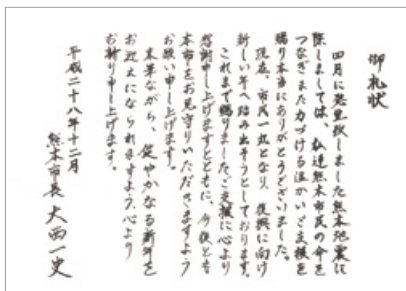 御礼状
四月に発生致しました熊本地震に
際しましては、私達熊本市民の命を
つなぎまた力づける温かいご支援を
賜り本当にありがとうございました。
現在、市民一丸となり、復興に向け
新しい年へ踏み出そうとしております。
これまで賜りましたご支援に心より
感謝申し上げますとともに、今後とも
本市をお見守りいただきますよう
お願い申し上げます。
末筆ながら、健やかなる新年を
お迎えになられますよう、心より
お祈り申し上げます。
平成二十八年十二月
熊本市長 大西一史